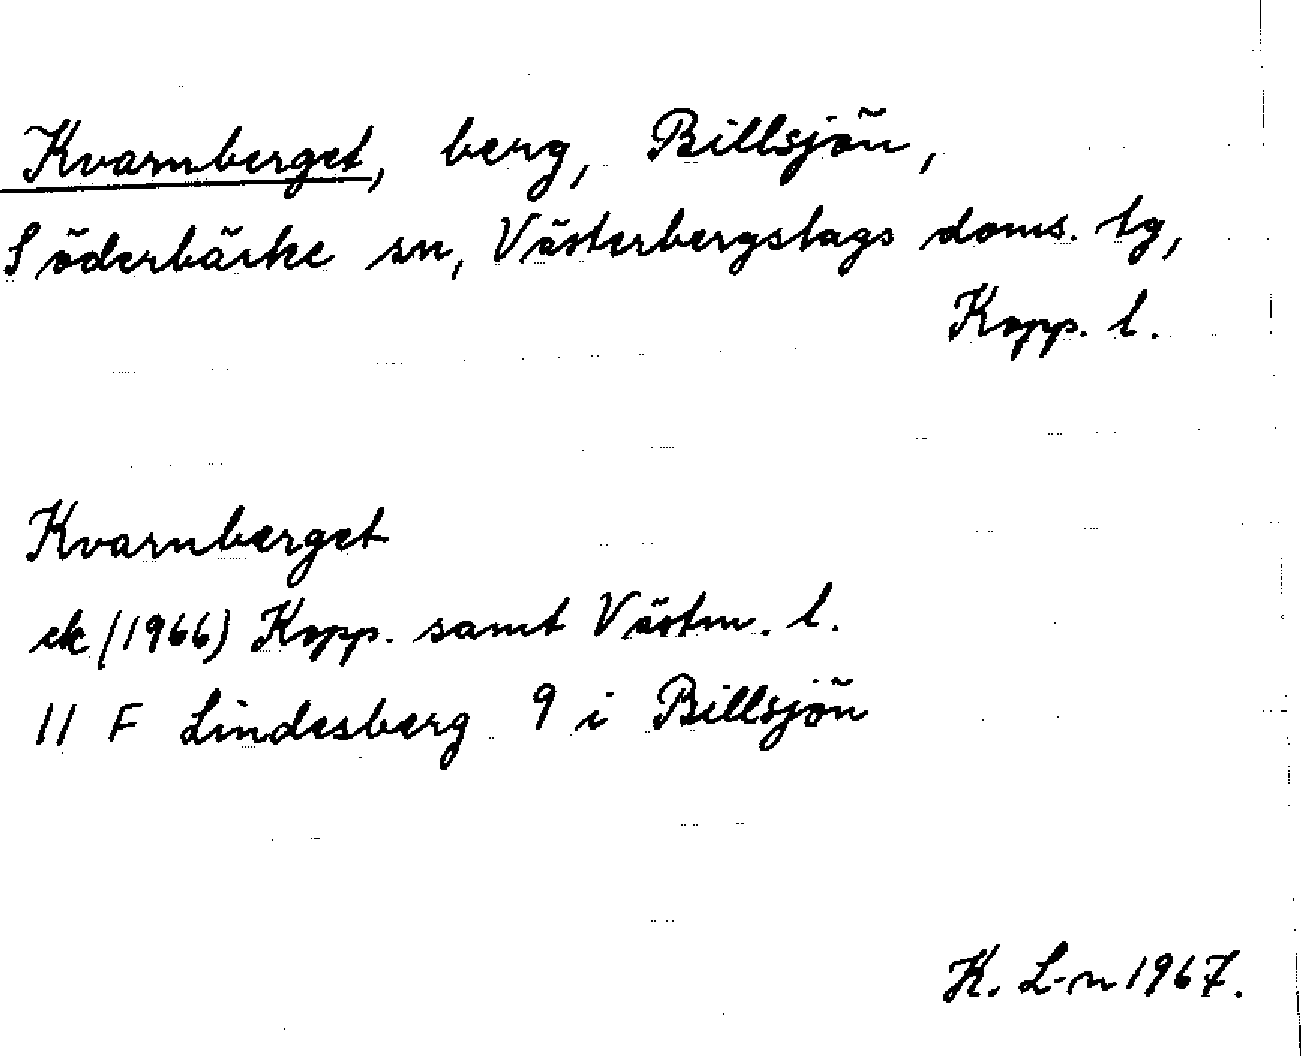 Kvarnberget, berg, Billsjön,
Söderbärke sn, Västerbergslags doms. tg,
Kopp. l.
Kvarnberget
ek (1966) Kopp. samt Västm. l.
11 F Lindesberg 9 i Billsjön
K. L-n 1967.